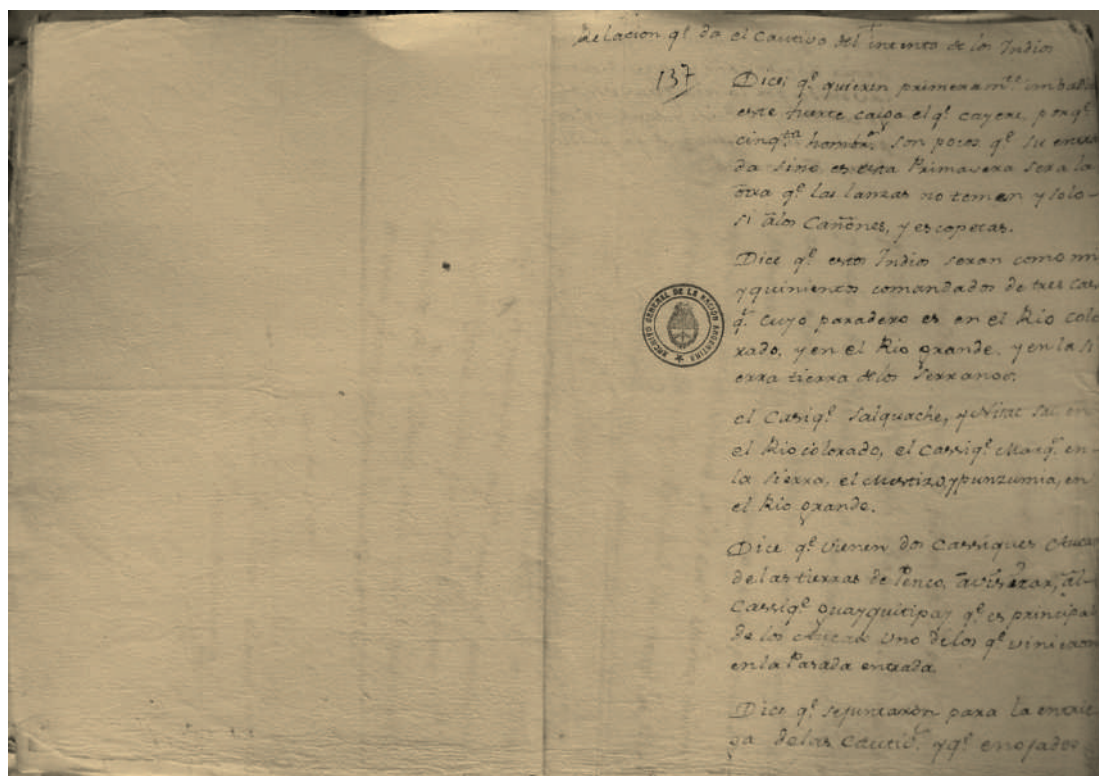 Relacion q.^e da el Cautivo del intento de los Indios
137
Dice q.^e quieren primeram.^te imbadir
este fuerte caiga el q.^e cayere, porq.^e
cinq.^ta hombr.^s son pocos q.^e su entra
da sino es esta Primavera sera la
otra q.^e las lanzas no temen y solo-
si âlos Cañones, y escopetas.
Dice q.^e estos Indios seran como mil
y quinientos comandados de tres Cas
q.^s cuyo paradero es en el Rio colo
rado, y en el Rio grande, y en la si
erra tierra delos Serranos.
el Casiq.^e Salquache, y en
el Rio colorado, el Cassiq.^e Marq.^s en-
la sierra, el Mestizo, y punzumia, en
el Rio grande.
Dice q.^e vienen dos Cassiques Aucas
delas tierras de Penco, âvisitar, âl-
Cassiq.^e Guayquitipay q.^e es principal
de los Aucas uno delos q.^e vinieron
en la Pasada entrada.
Dice q.^e sejuntaron para la entre
ga delas Cautiv.^s yq.^e enojados
ARCHIVO GENERAL DE LA NACION ARGENTINA